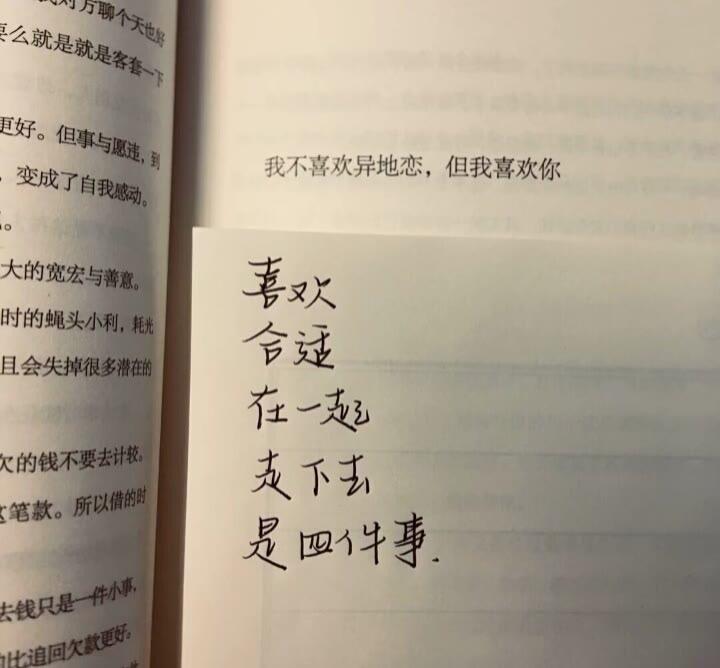 对方聊个天也好
么就是就是客套一下
更好。但事与愿违，到
，变成了自我感动。
大的宽宏与善意。
时的蝇头小利，耗光
且会失掉很多潜在的
欠的钱不要去计较。
这笔款。所以借的时
去钱只是一件小事，
比追回欠款更好。
我不喜欢异地恋，但我喜欢你
喜欢
合适
在一起
走下去
是四件事.